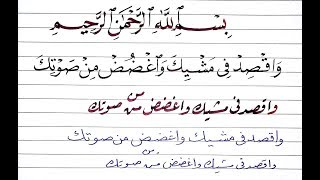 بِسْمِ ٱللَّهِ ٱلرَّحْمَٰنِ ٱلرَّحِيمِ
وَٱقْصِدْ فِى مَشْيِكَ وَٱغْضُضْ مِنْ صَوْتِكَ
واقصد في مشيك واغضض من صوتك
واقصد في مشيك واغضض من صوتك
واقصد في مشيك واغضض من صوتك